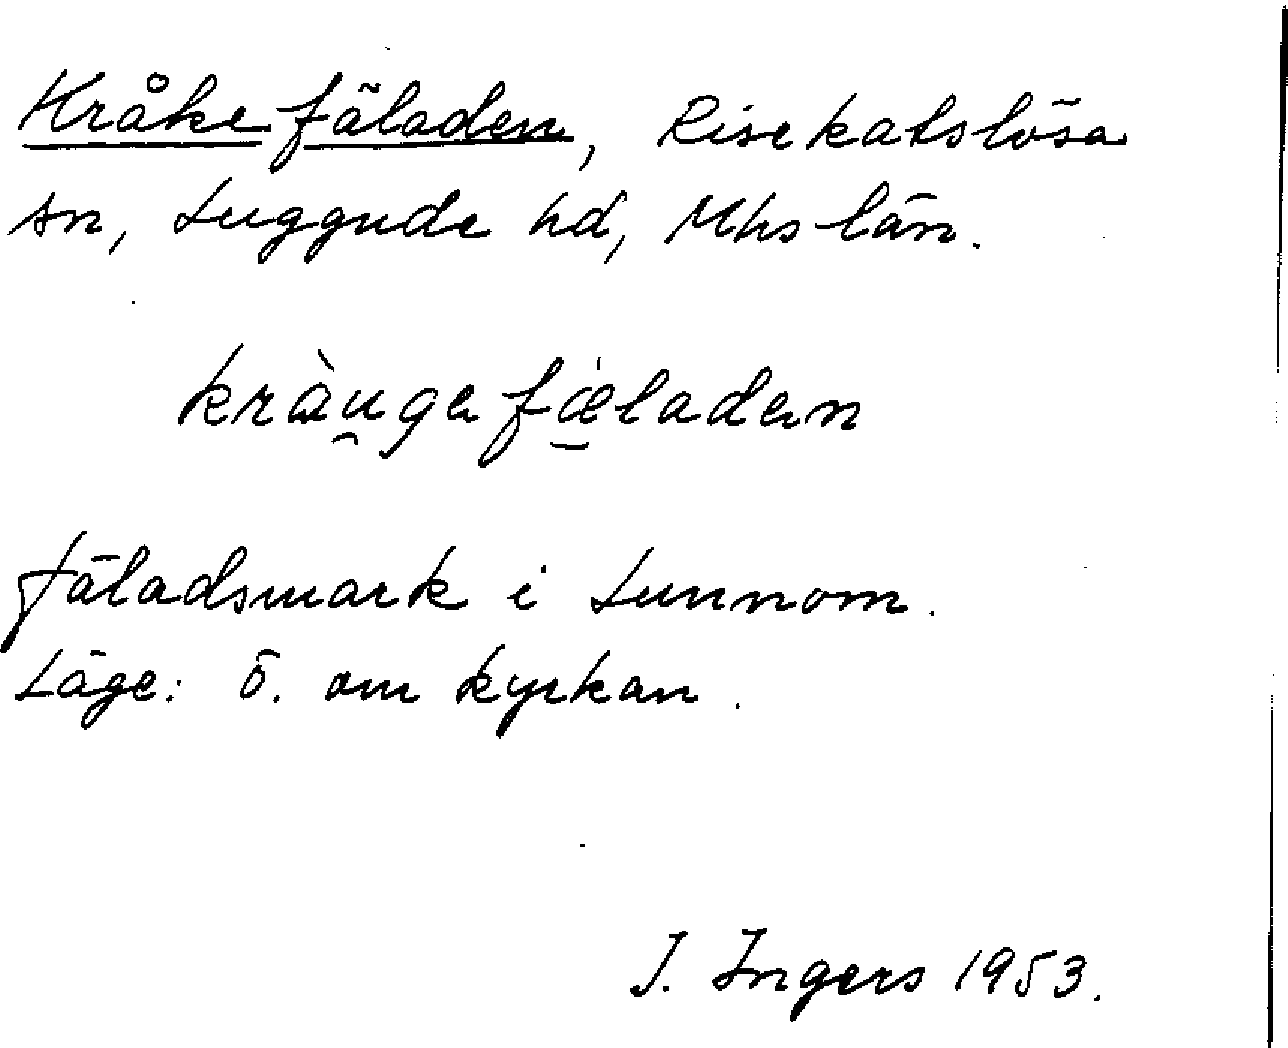 Kråkefäladen, Risekatslösa
sn, Luggude hd, Mhs län.
kràu̯gefǽladen
Fäladsmark i Lunnom.
Läge: Ö. om kyrkan.
I. Ingers 1953.